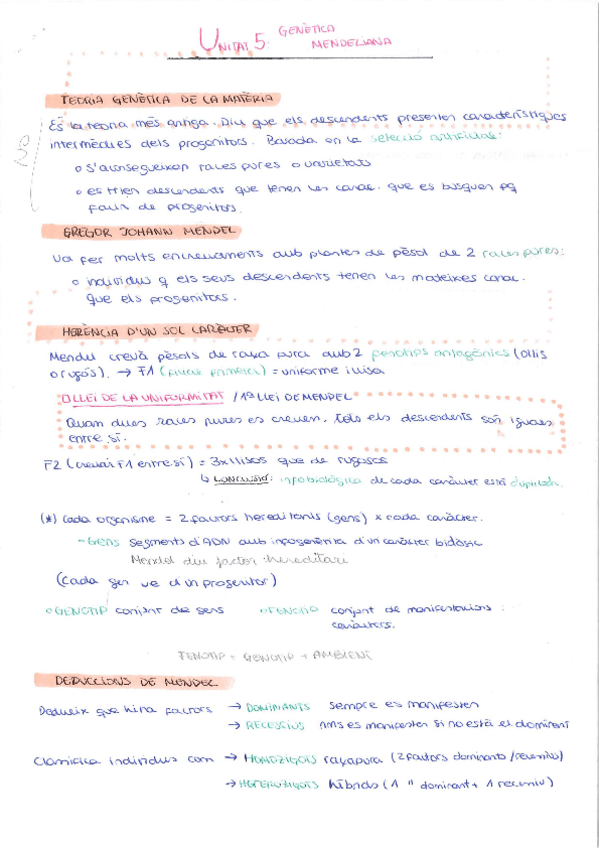 UNITAT 5: GENÈTICA
MENDELIANA
TEORIA GENÈTICA DE LA MATÈRIA
És la teoria més antiga. Diu que els descendents presenten característiques
intermèdies dels progenitors. Basada en la selecció artificial:
o S'aconsegueixen races pures o varietats
o es trien descendents que tenen les carac. que es busquen pq
facin de progenitors.
GREGOR JOHANN MENDEL
Va fer molts encreuaments amb plantes de pèsol de 2 races pures:
o individus q els seus descendents tenen les mateixes carac.
que els progenitors.
HERÈNCIA D'UN SOL CARÀCTER
Mendel creuà pèsols de raça pura amb 2 fenotips antagònics (llis
o rugós). → F1 (filial primera) = uniforme i llisa
LLEI DE LA UNIFORMITAT / 1ª LLEI DE MENDEL
Quan dues races pures es creuen, tots els descendents són iguals
entre sí.
F2 (creuar F1 entre sí) = 3x llisos que de rugosos
↳ conclusió: info biològica de cada caràcter està duplicada.
(*) Cada organisme = 2 factors hereditaris (gens) x cada caràcter.
- GENS segments d'ADN amb info genètica d'un caràcter biològic
Mendel diu factor hereditari
(Cada gen ve d'un progenitor)
o GENOTIP conjunt de gens o FENOTIP conjunt de manifestacions
caràcters.
FENOTIP = GENOTIP + AMBIENT
DEDUCCIONS DE MENDEL
Dedueix que hi ha factors → DOMINANTS sempre es manifesten
→ RECESSIUS només es manifesten si no està el dominant
Classifica individus com → HOMOZIGOTS raça pura (2 factors dominants / recessius)
→ HETEROZIGOTS híbrids (1 " dominant + 1 recessiu)